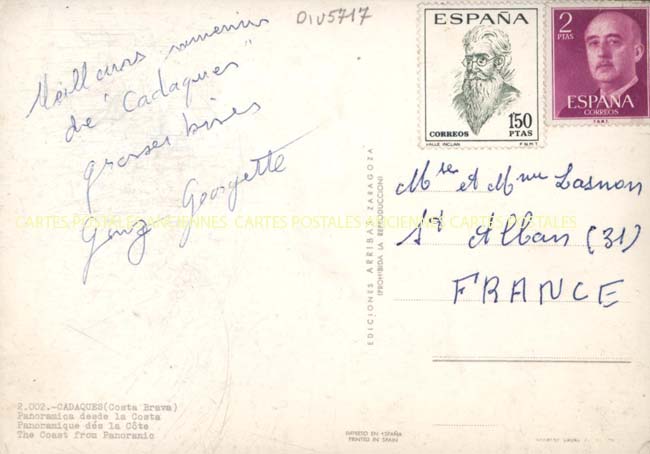 DIV5717
Meilleurs souvenirs
de "Cadaques"
grosses bises
Georgette
ESPAÑA
CORREOS
1'50
PTAS
VALLE INCLAN
F.N.M.T.
2
PTAS
ESPAÑA
CORREOS
F.N.M.T.
Mr et Mme Lasnon
St Alban (31)
FRANCE
CARTES POSTALES ANCIENNES CARTES POSTALES ANCIENNES CARTES POSTALES
EDICIONES ARRIBAS ZARAGOZA
(PROHIBIDA LA REPRODUCCION)
2.002.-CADAQUES(Costa Brava)
Panoramica desde la Costa
Panoramique dés la Côte
The Coast from Panoramic
IMPRESO EN ESPAÑA
PRINTED IN SPAIN